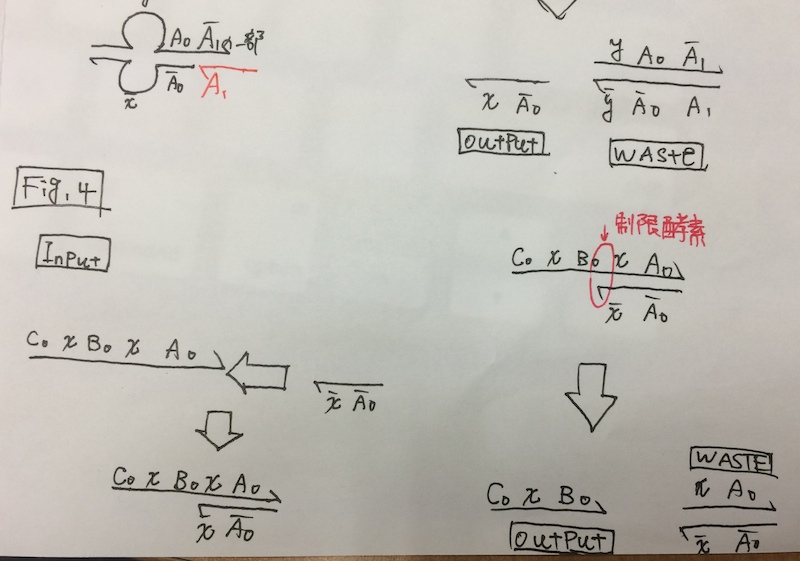 A₀ Ā₁
x̄
Ā₀
A₁
y A₀ Ā₁
x Ā₀
ȳ Ā₀ A₁
OutPut
WASTE
Fig. 4
InPut
制限酵素
C₀ x B₀ x A₀
x̄ Ā₀
C₀ x B₀ x A₀
x̄ Ā₀
C₀ x B₀ x A₀
x̄ Ā₀
WASTE
C₀ x B₀
x A₀
OutPut
x̄ Ā₀